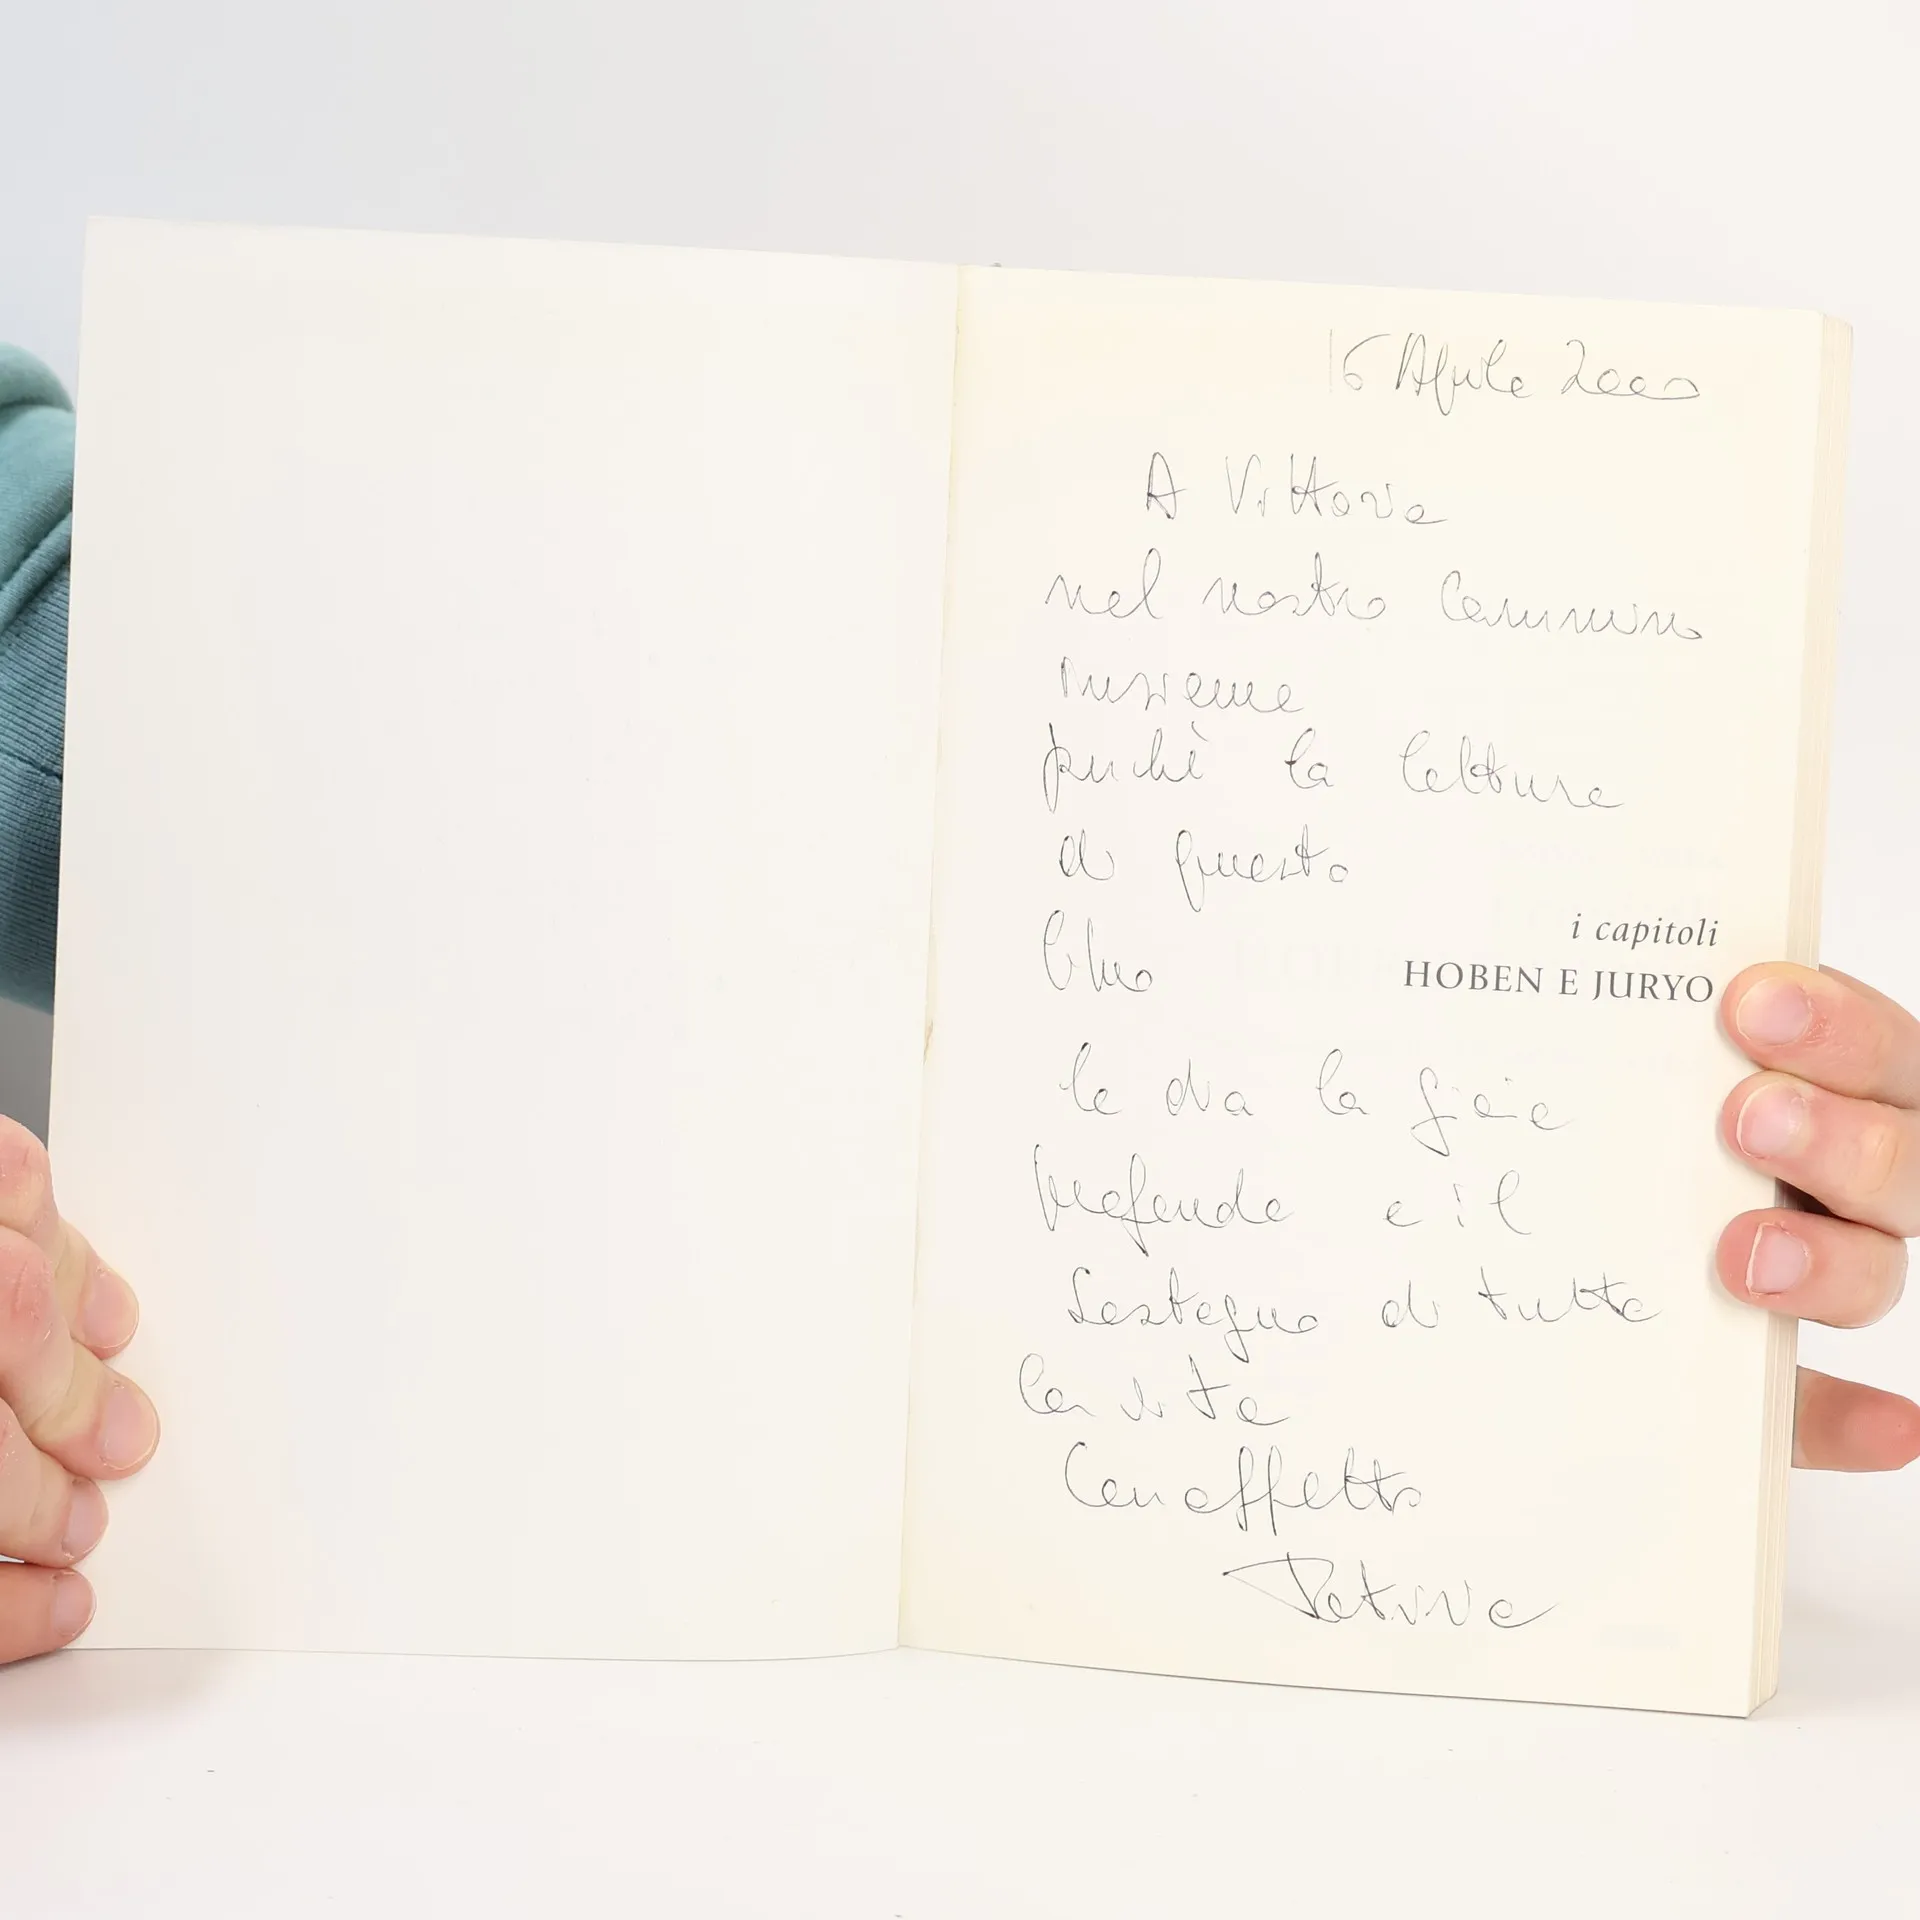 16 Aprile 2000
A Vittoria
nel nostro cammino
insieme
perché la lettura
di questo
libro
i capitoli
HOBEN E JURYO
le dia la gioia
profonda e il
sostegno di tutta
la vita
Con affetto